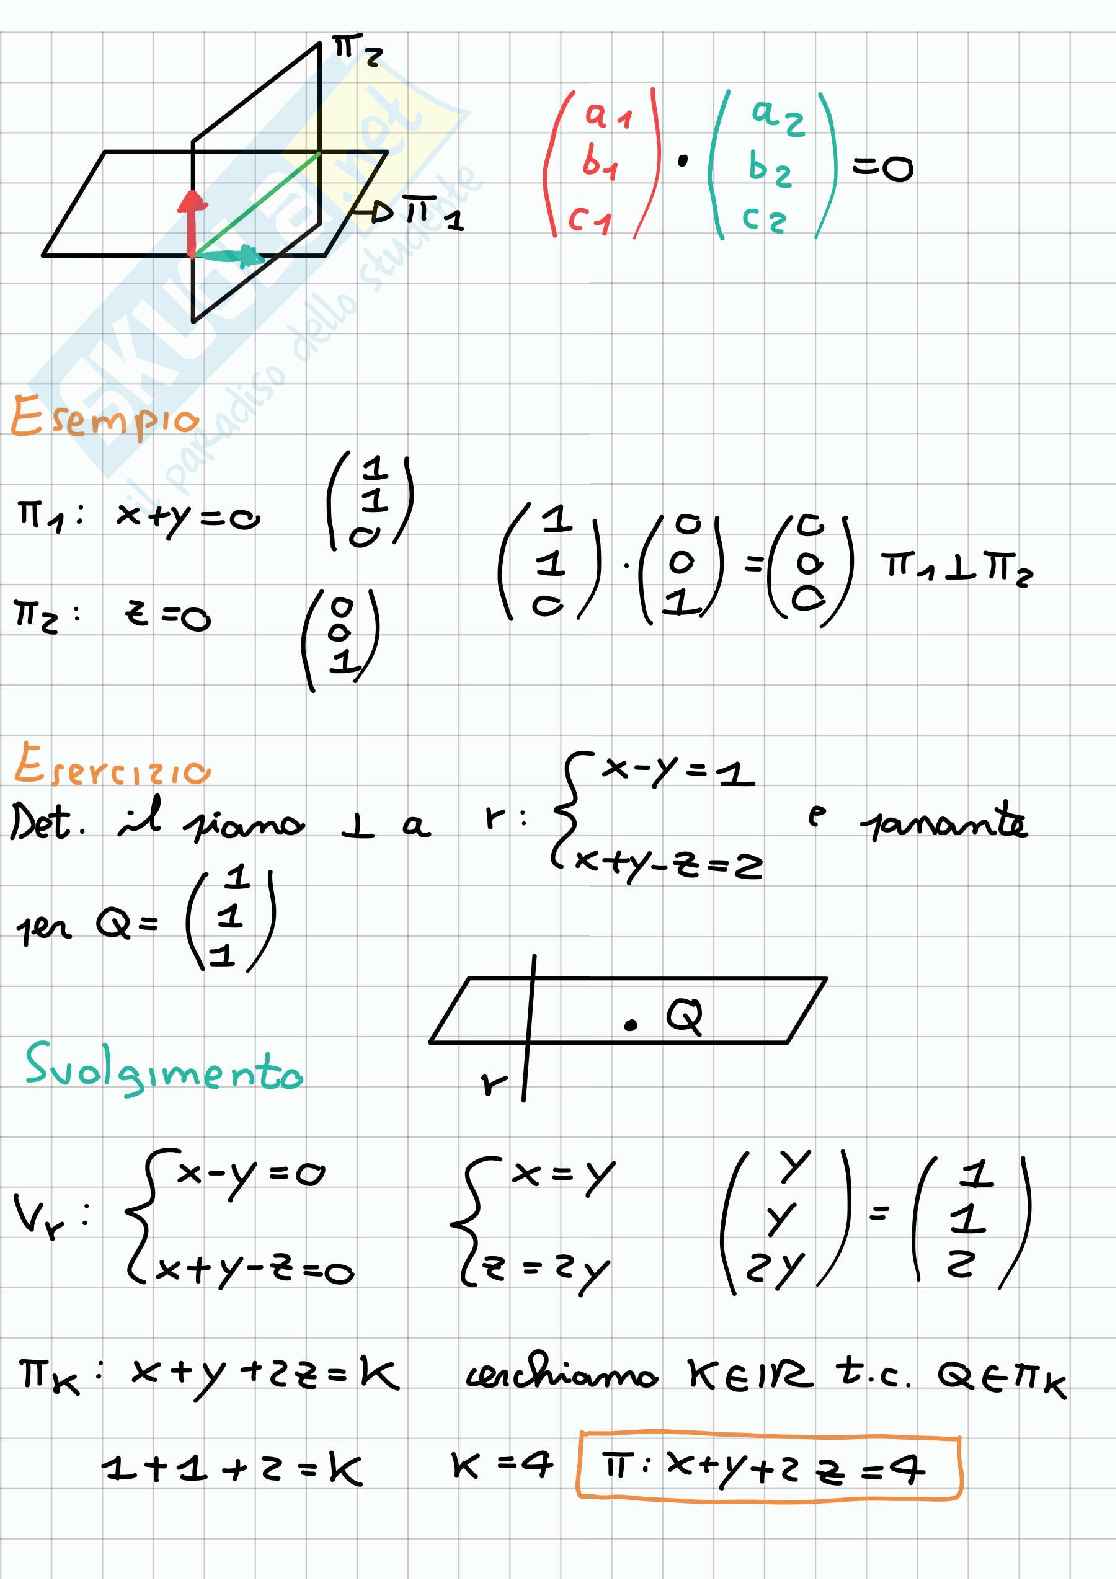 π₂
π₁
(a₁ b₁ c₁) · (a₂ b₂ c₂) = 0
SKUOLA.net
il paradiso dello studente
Esempio
π₁: x+y=0 (1 1 0)
π₂: z=0 (0 0 1)
(1 1 0) · (0 0 1) = (0 0 0) π₁⊥π₂
Esercizio
Det. il piano ⊥ a r: { x-y=1 x+y-z=2 e passante
per Q= (1 1 1)
Q
r
Svolgimento
Vᵣ: { x-y=0 x+y-z=0 { x=y z=2y (y y 2y) = (1 1 2)
π_K: x+y+2z=K cerchiamo K∈ℝ t.c. Q∈π_K
1+1+2=K K=4 π: x+y+2z=4